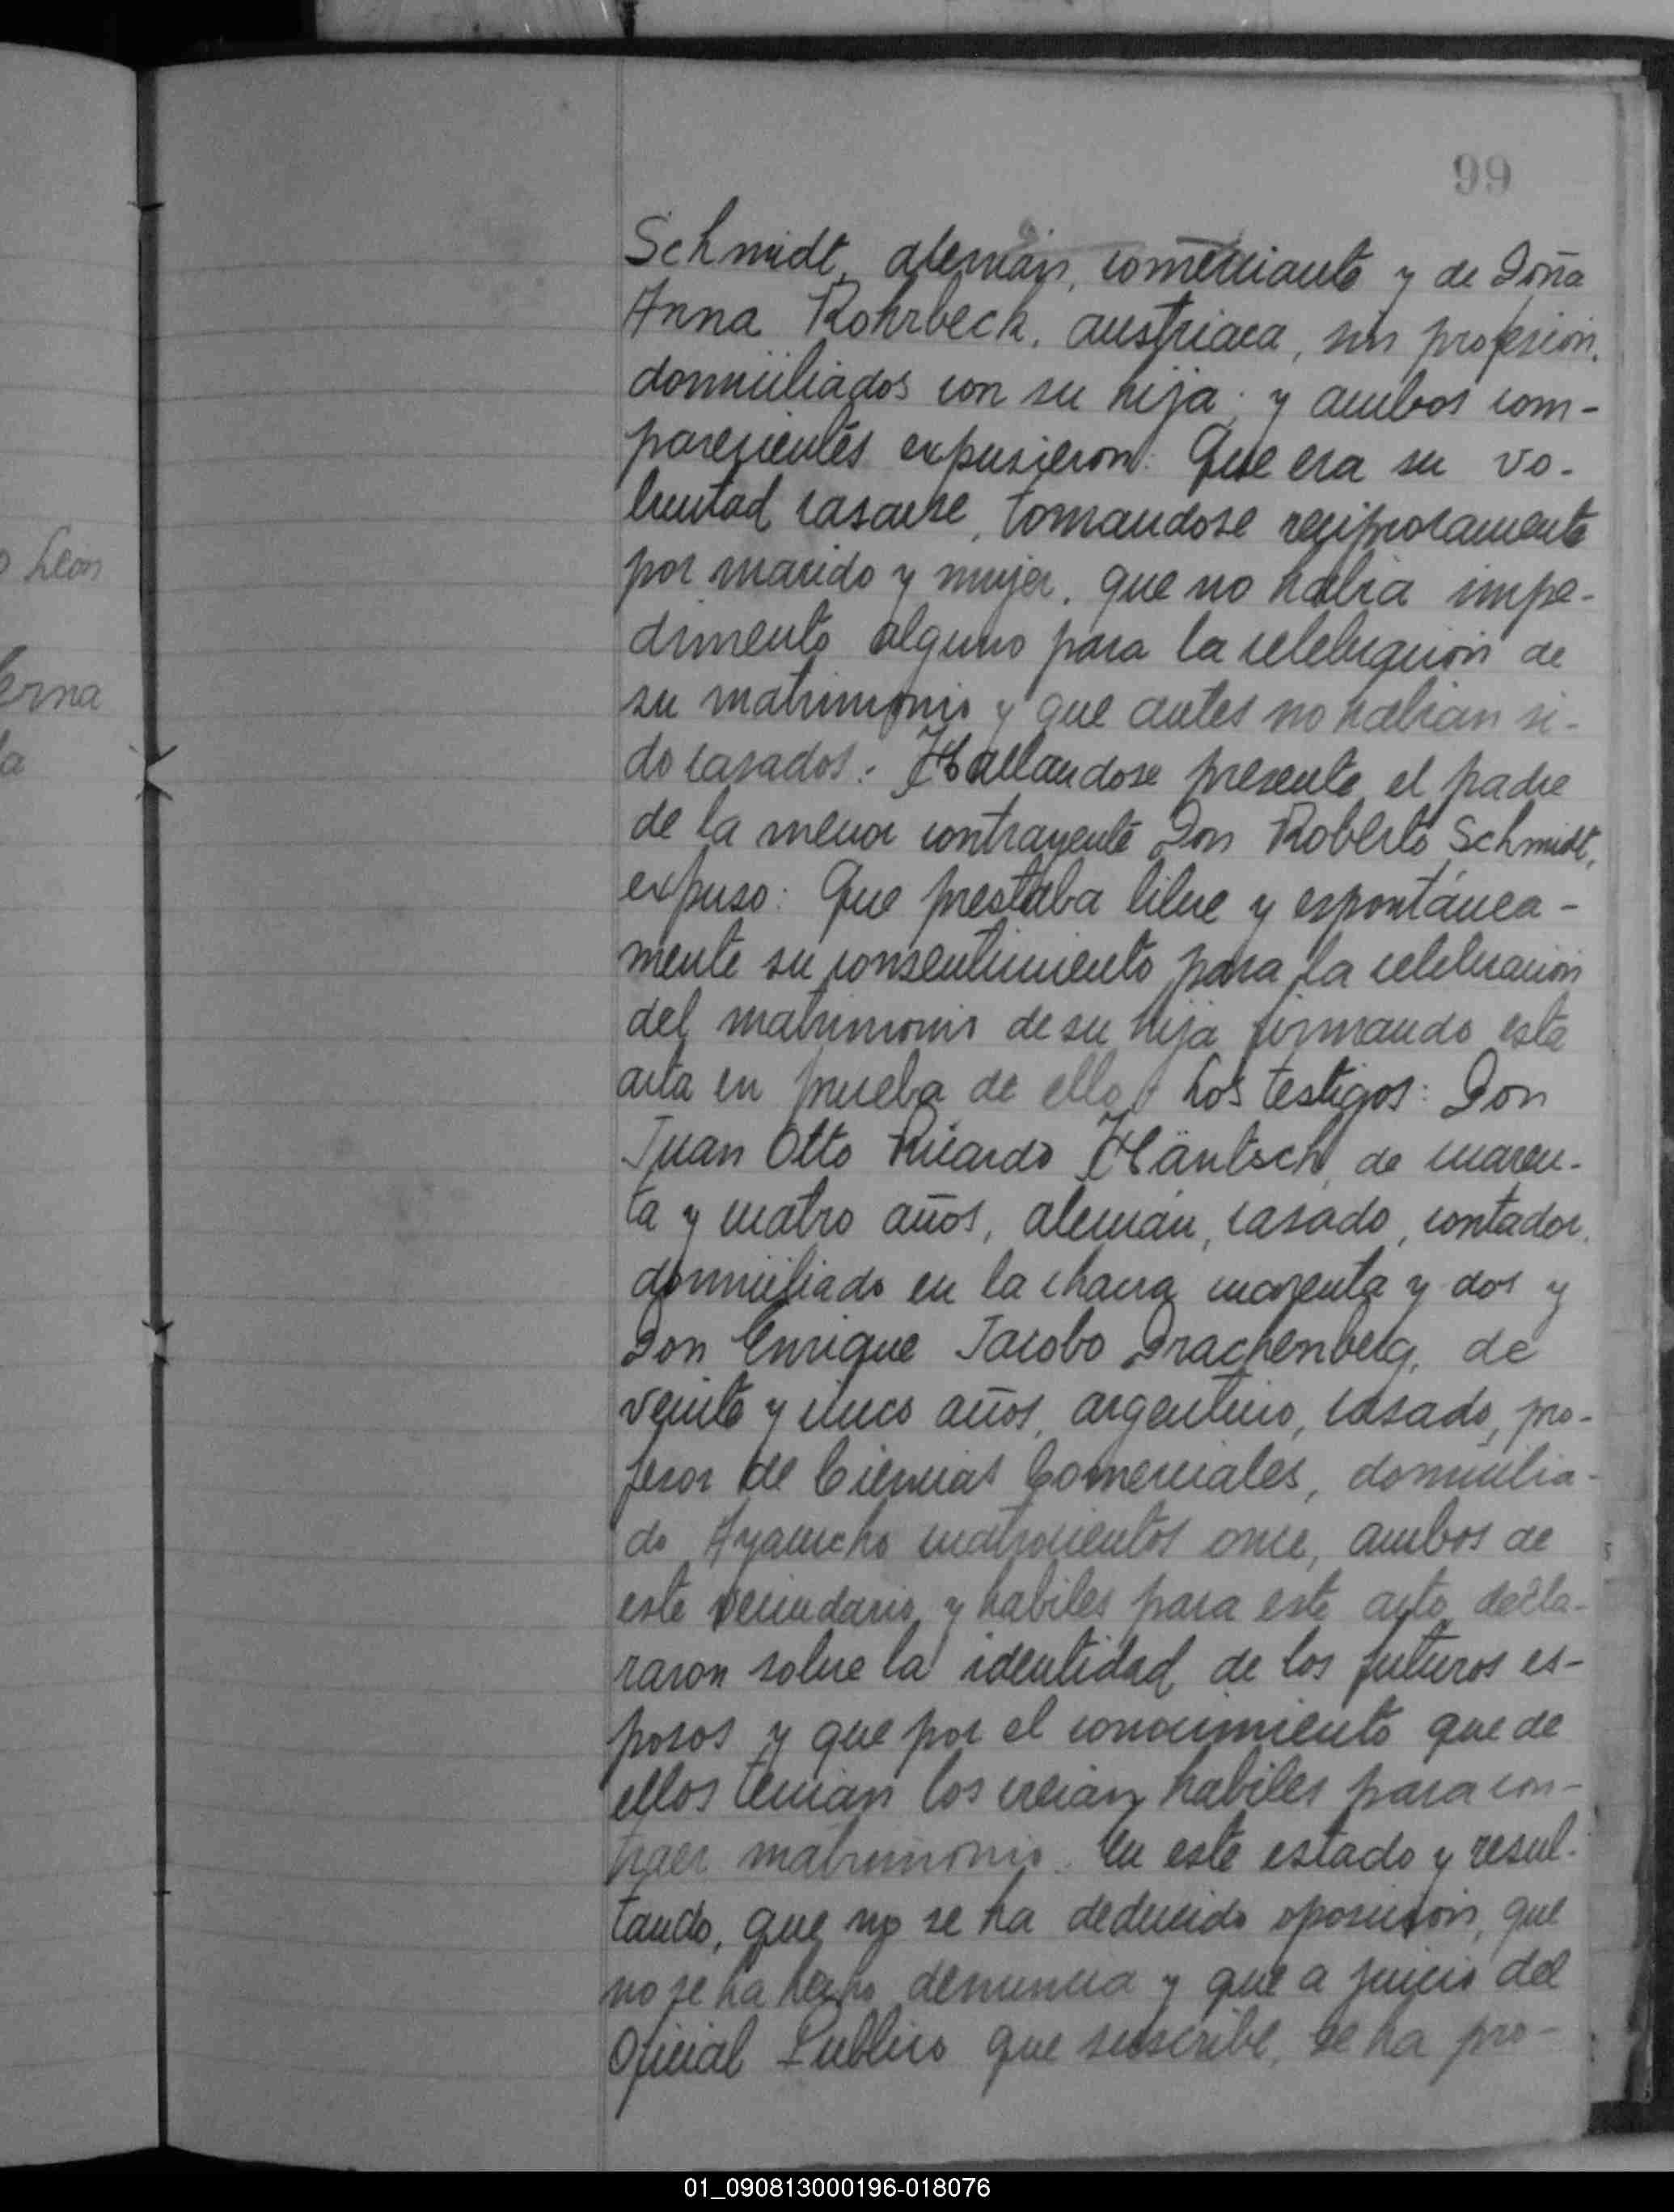 99
Schmidt, alemán, comerciante y de Doña
Anna Rohrbeck, austriaca, sin profesión,
domiciliados con su hija; y ambos com-
parecientes expusieron: Que era su vo-
luntad casarse, tomandose reciprocamente
por marido y mujer, que no habia impe-
dimento alguno para la celebración de
su matrimonio y que antes no habian si-
do casados. Hallandose presente el padre
de la menor contrayente Don Roberto Schmidt,
expuso: Que prestaba libre y espontánea-
mente su consentimiento para la celebración
del matrimonio de su hija firmando esta
acta en prueba de ello. Los testigos: Don
Juan Otto Ricardo Häntsch, de cuaren-
ta y cuatro años, alemán, casado, contador,
domiciliado en la chacra cuarenta y dos y
Don Enrique Jacobo Drachenberg, de
veinte y cinco años, argentino, casado, pro-
fesor de Ciencias Comerciales, domicilia-
do Ayacucho cuatrocientos once, ambos de
este vecindario y habiles para este acto decla-
raron sobre la identidad de los futuros es-
posos y que por el conocimiento que de
ellos tenian los creian habiles para con-
traer matrimonio. En este estado y resul-
tando, que no se ha deducido oposición, que
no se ha hecho denuncia y que a juicio del
Oficial Publico que suscribe, se ha pro-
León
erna
a
01_090813000196-018076